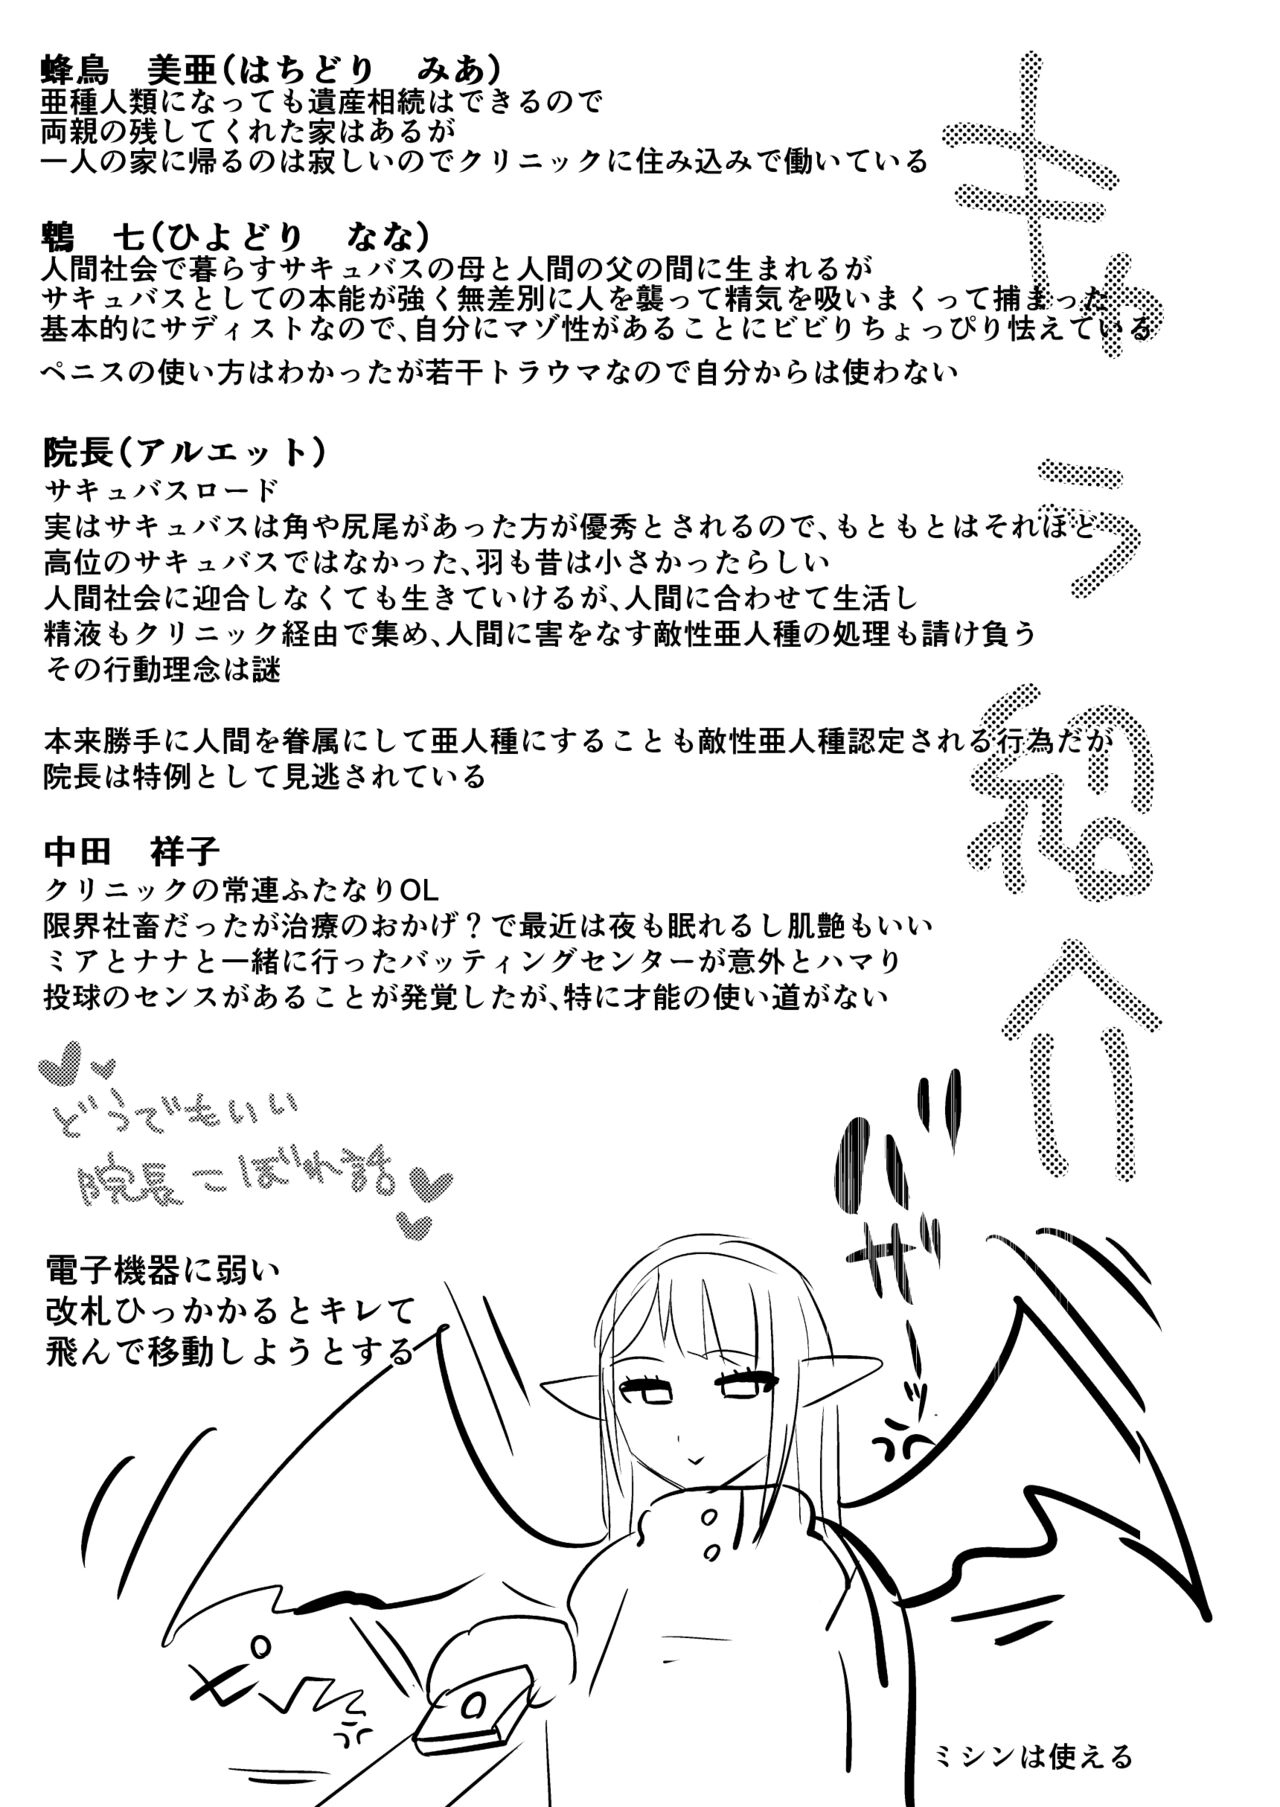 キャラ紹介
蜂鳥　美亜(はちどり　みあ)
亜種人類になっても遺産相続はできるので
両親の残してくれた家はあるが
一人の家に帰るのは寂しいのでクリニックに住み込みで働いている
鵯　七(ひよどり　なな)
人間社会で暮らすサキュバスの母と人間の父の間に生まれるが
サキュバスとしての本能が強く無差別に人を襲って精気を吸いまくって捕まった
基本的にサディストなので、自分にマゾ性があることにビビりちょっぴり怯えている
ペニスの使い方はわかったが若干トラウマなので自分からは使わない
院長(アルエット)
サキュバスロード
実はサキュバスは角や尻尾があった方が優秀とされるので、もともとはそれほど
高位のサキュバスではなかった、羽も昔は小さかったらしい
人間社会に迎合しなくても生きていけるが、人間に合わせて生活し
精液もクリニック経由で集め、人間に害をなす敵性亜人種の処理も請け負う
その行動理念は謎
本来勝手に人間を眷属にして亜人種にすることも敵性亜人種認定される行為だが
院長は特例として見逃されている
中田　祥子
クリニックの常連ふたなりOL
限界社畜だったが治療のおかげ？で最近は夜も眠れるし肌艶もいい
ミアとナナと一緒に行ったバッティングセンターが意外とハマり
投球のセンスがあることが発覚したが、特に才能の使い道がない
どうでもいい
院長こぼれ話
電子機器に弱い
改札ひっかかるとキレて
飛んで移動しようとする
バサーッ
ミシンは使える